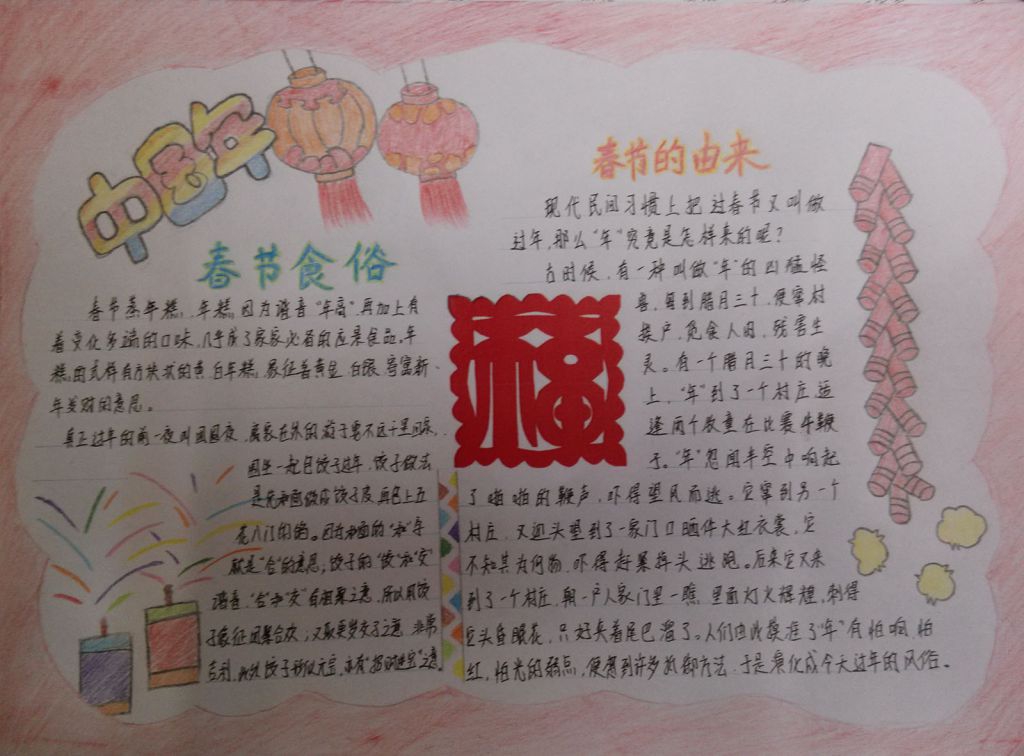 中国年
春节食俗
春节蒸年糕，年糕因为谐音“年高”，再加上有
着变化多端的口味，几乎成了家家必备的应景食品。年
糕的式样有方块状的黄、白年糕，象征着黄金、白银，寄寓新
年发财的意思。
真正过年的前一夜叫团圆夜，离家在外的游子要不远千里回家，
围坐一起包饺子过年，饺子做法
是先和面做成饺子皮，再包上五
花八门的馅。因为和面的“和”字
就是“合”的意思；饺子的“饺”和“交”
谐音，“合”和“交”有相聚之意，所以用饺
子象征团聚合欢；又取更岁交子之意，非常
吉利，此外，饺子形似元宝，亦有“招财进宝”之意。
春节的由来
现代民间习惯上把过春节又叫做
过年，那么“年”究竟是怎样来的呢？
古时候，有一种叫做“年”的凶猛怪
兽，每到腊月三十，便窜村
挨户，觅食人肉，残害生
灵。有一个腊月三十的晚
上，“年”到了一个村庄，适
逢两个牧童在比赛牛鞭
子。“年”忽闻半空中响起
了啪啪的鞭声，吓得望风而逃。它窜到另一个
村庄，又迎头望到了一家门口晒件大红衣裳，它
不知其为何物，吓得赶紧掉头逃跑。后来它又来
到了一个村庄，朝一户人家门里一瞧，里面灯火辉煌，刺得
它头昏眼花，只好夹着尾巴溜了。人们由此摸准了“年”有怕响，怕
红，怕光的弱点，便想到许多抵御方法，于是演化成今天过年的风俗。
福